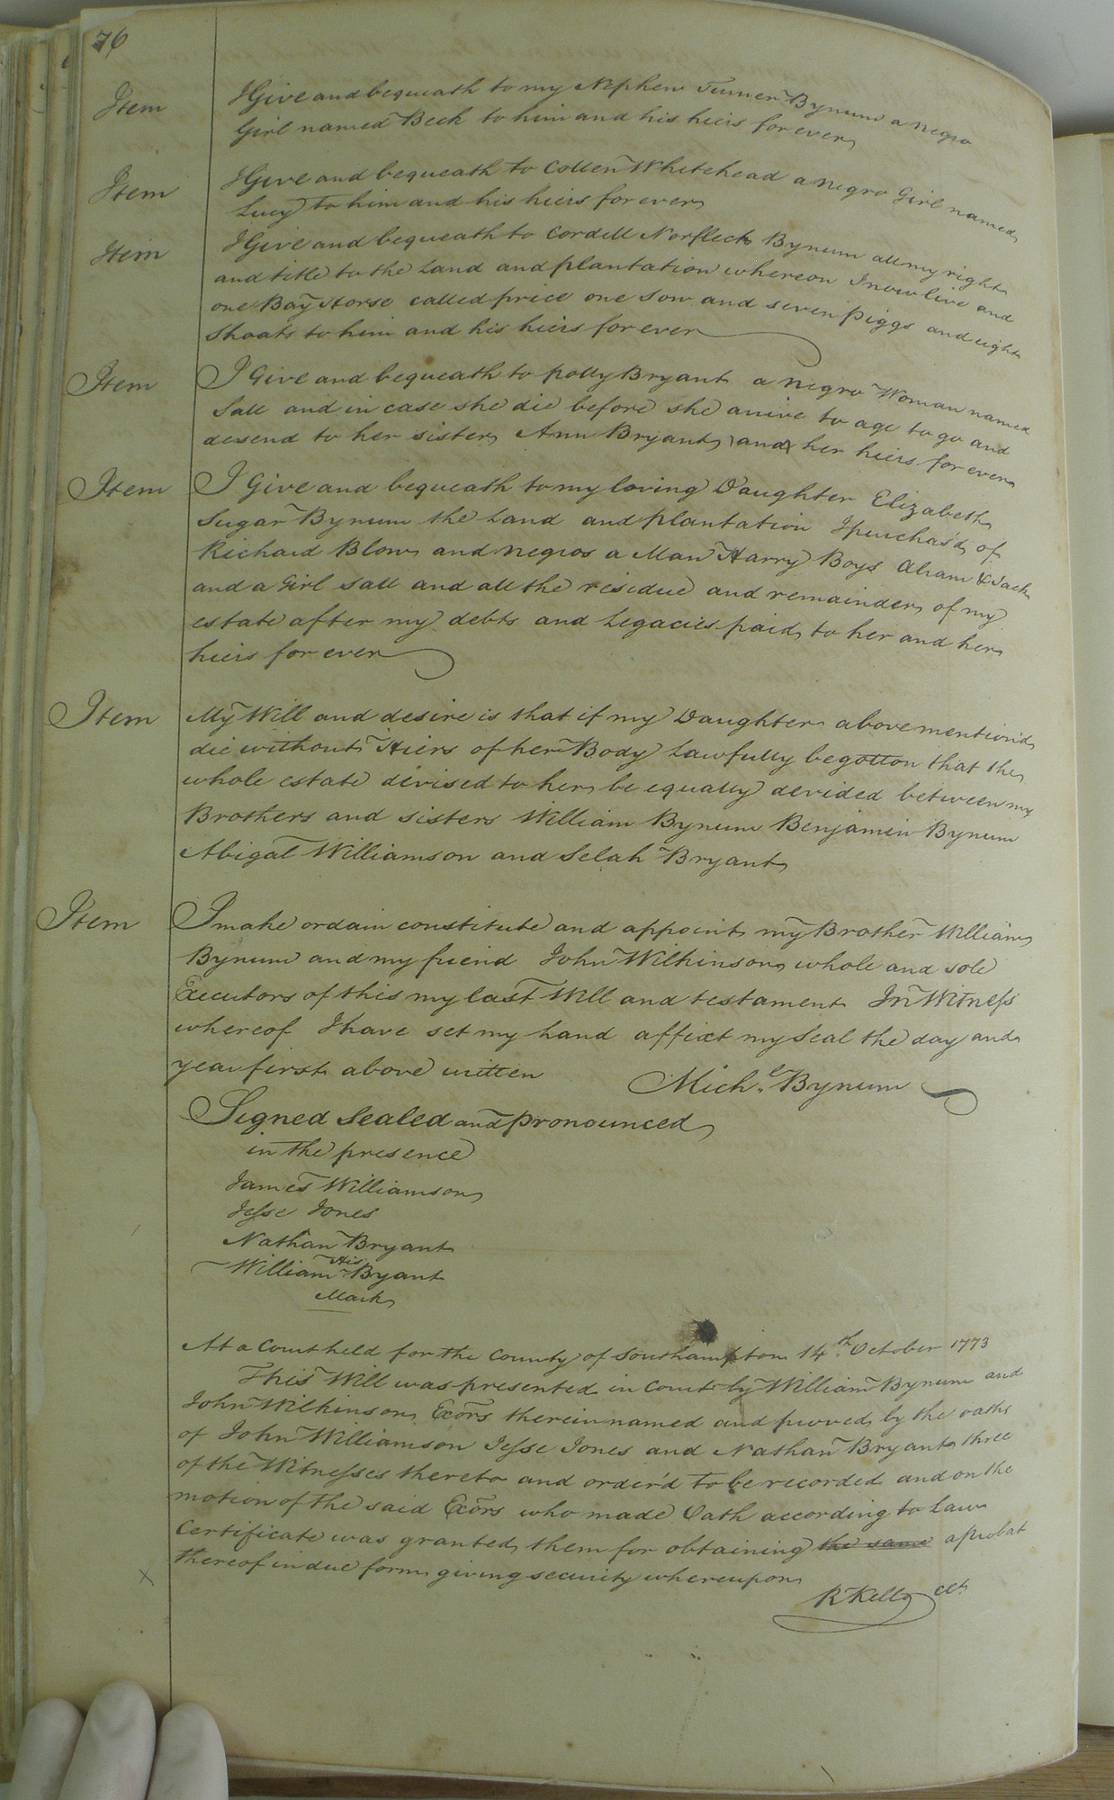 76
Item I Give and bequeath to my Nephew Turner Bynum a negro
Girl named Beck to him and his heirs for ever
Item I Give and bequeath to Collen Whitehead a negro Girl named
Lucy to him and his heirs for ever
Item I Give and bequeath to Cordell Norfleck Bynum all my right
and title to the Land and plantation whereon I now live and
one Bay Horse called price one Sow and seven piggs and eight
Shoats to him and his heirs for ever
Item I Give and bequeath to polly Bryant a negro Woman named
Sall and in case she die before she arrive to age to go and
desend to her sister Ann Bryant and her heirs for ever
Item I Give and bequeath to my loving Daughter Elizabeth
Sugar Bynum the Land and plantation I purchas'd of
Richard Blow and negros a Man Harry Boys Abram & Jack
and a Girl Sall and all the residue and remainder of my
estate after my debts and Legacies paid to her and her
heirs for ever
Item My Will and desire is that if my Daughter above mention'd
die without Hiers of her Body Lawfully begotton that the
whole estate devised to her be equally devided between my
Brothers and sisters William Bynum Benjamin Bynum
Abigal Williamson and Selah Bryant
Item I make ordain constitute and appoint my Brother William
Bynum and my friend John Wilkinson whole and sole
Executors of this my last Will and testament In Witness
whereof I have set my hand affixt my Seal the day and
year first above written Michl. Bynum
Signed Sealed and pronounced
in the presence
James Williamson
Jesse Jones
Nathan Bryant
His
William Byant
Mark
At a Court held for the County of Southampton 14th. October 1773
This Will was presented in Court by William Bynum and
John Wilkinson Exors therein named and proved by the oaths
of John Williamson Jesse Jones and Nathan Bryant three
of the Witnesses thereto and order'd to be recorded and on the
motion of the said Exors who made Oath according to Law
Certificate was granted them for obtaining the same a probat
thereof in due form giving security whereupon
R Kello Clk